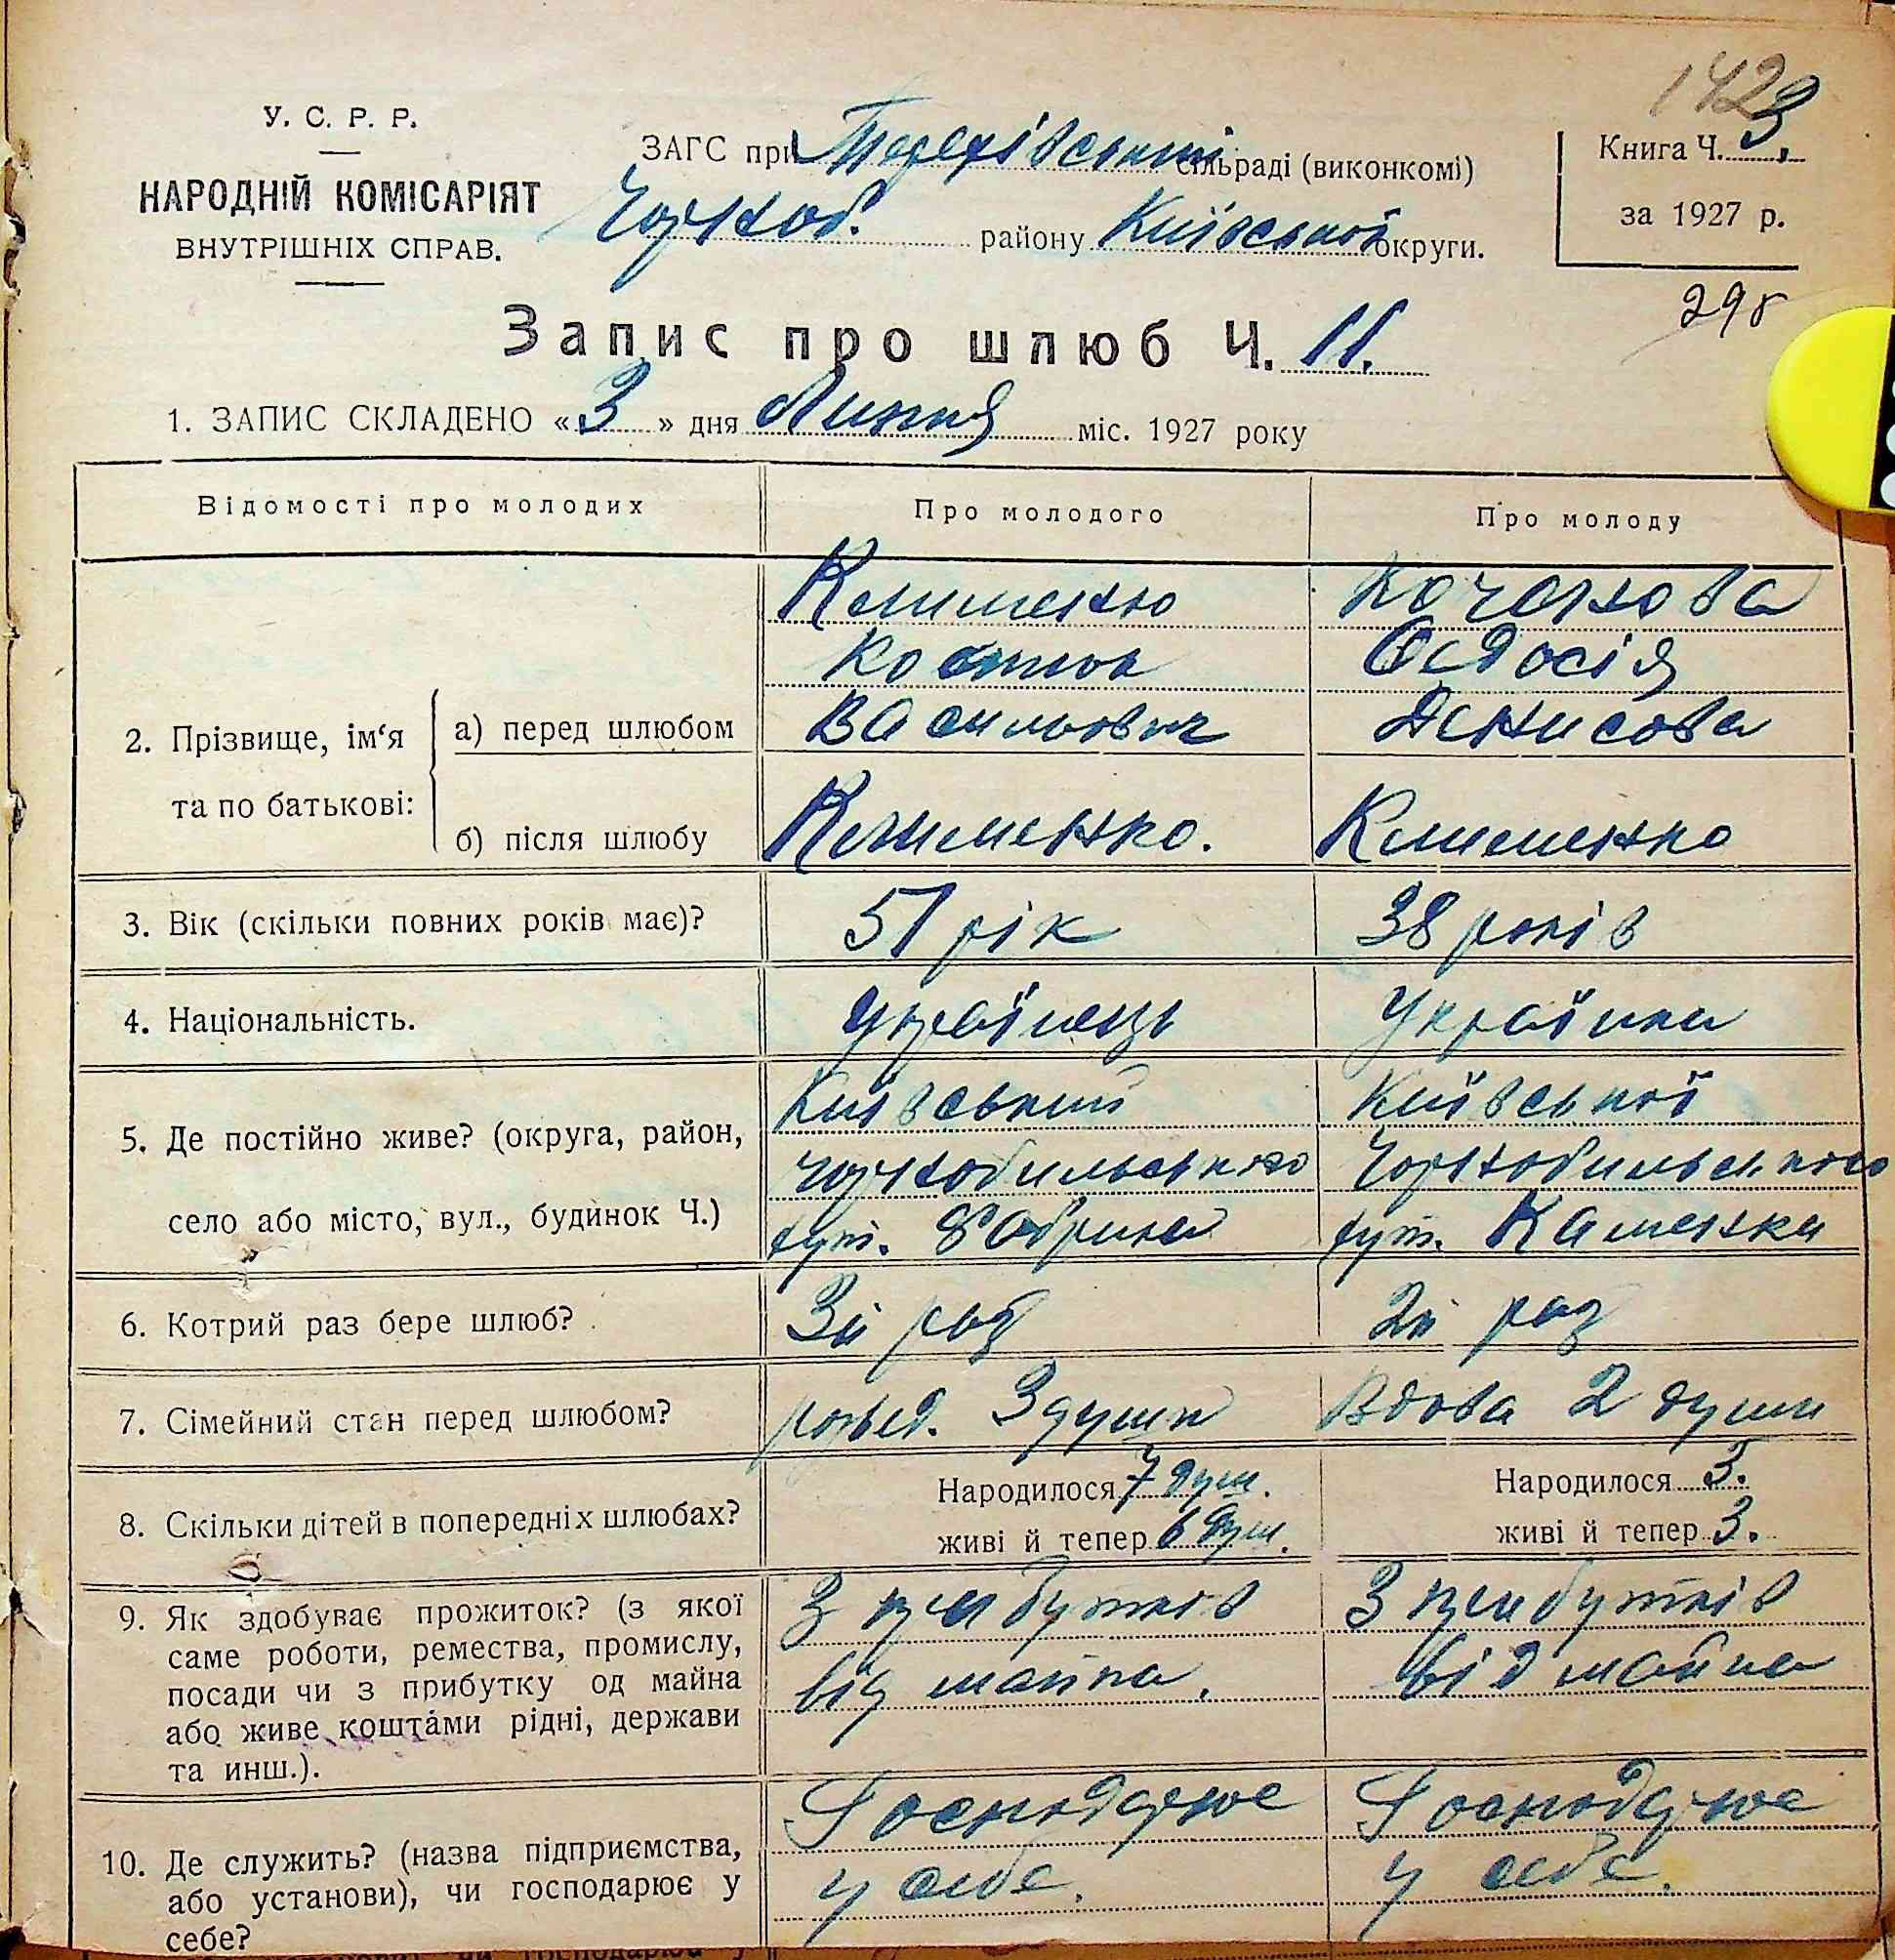 1423
У. С. Р. Р.
НАРОДНІЙ КОМІСАРІЯТ
ВНУТРІШНІХ СПРАВ.
ЗАГС при Терехівській сільраді (виконкомі)
Чорноб. району Київської округи.
Книга Ч. 3.
за 1927 р.
298
Запис про шлюб Ч. 11.
1. ЗАПИС СКЛАДЕНО «3» дня Липня міс. 1927 року
Відомості про молодих
Про молодого
Про молоду
2. Прізвище, ім‘я та по батькові:
а) перед шлюбом
Клименко
Костюк
Васильович
Коченова
Федосія
Денисова
б) після шлюбу
Клименко.
Клименко
3. Вік (скільки повних років має)?
51 рік
38 років
4. Національність.
Українець
Українка
5. Де постійно живе? (округа, район,
село або місто, вул., будинок Ч.)
Київський
Чорнобильського
хут. Фабрика
Київської
Чорнобильського
хут. Каменка
6. Котрий раз бере шлюб?
3й раз
2й раз
7. Сімейний стан перед шлюбом?
розвед. 3 души
Вдова 2 души
8. Скільки дітей в попередніх шлюбах?
Народилося 7 душ.
живі й тепер 6 душ.
Народилося 3.
живі й тепер 3.
9. Як здобуває прожиток? (з якої
саме роботи, ремества, промислу,
посади чи з прибутку од майна
або живе коштами рідні, держави
та инш.).
З прибутків
від майна.
З прибутків
від майна
10. Де служить? (назва підприємства,
або установи), чи господарює у
себе?
Господарює
у себе.
Господарює
у себе.